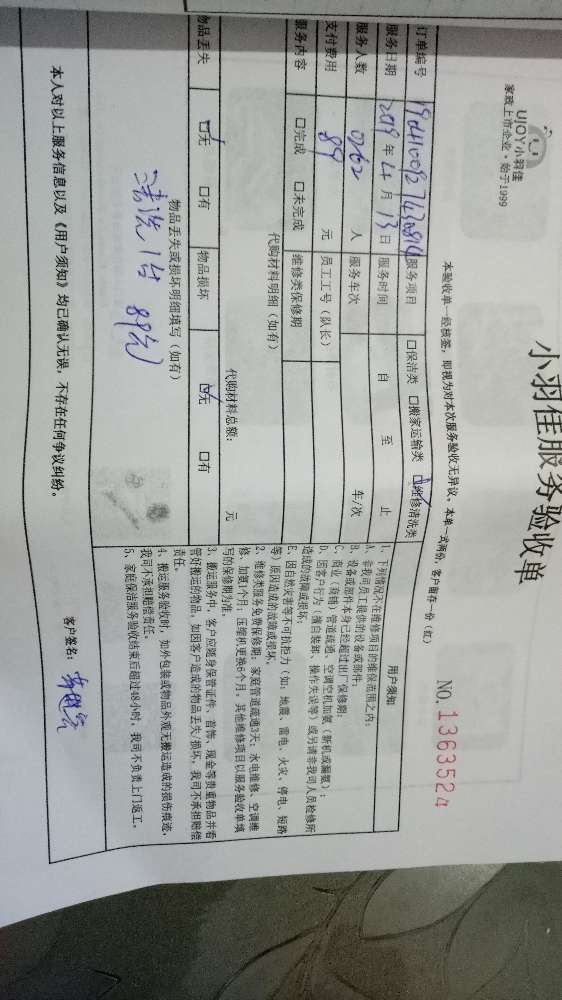 UJOY小羽佳
家政上市企业·始于1999
小羽佳服务验收单
本验收单一经核签，即视为对本次服务验收无异议。本单一式两份，客户留存一份（红）
NO.1363524
订单编号
服务项目 □保洁类 □搬家运输类 □维修清洗类
服务日期 2019年4月13日 服务时间 自 至 止
服务人数 0262 人 服务车次 车/次
支付费用 89 元 员工工号（队长）
服务内容 □完成 □未完成 维修类保修期
代购材料明细（如有）
代购材料总额： 元
物品丢失 □无 □有 物品损坏 □无 □有
物品丢失或损坏明细填写（如有）
清洗1台 89元
用户须知
1、下列情况不在维修项目的维保范围之内：
A、非我司员工提供的设备或部件；
B、设备或部件本身已经超过出厂保修期；
C、商业（商铺）管道疏通、空调空机加氨（新机或漏氨）；
D、因客户行为（擅自装卸、操作失误等）或另请非我司人员检修所
造成的故障或损坏；
E、因自然灾害等不可抗拒力（如：地震、雷电、火灾、停电、短路
等）原因造成的故障或损坏。
2、维修类服务免费保修期：家庭管道疏通3天；水电维修、空调维
修、加氨1个月，压缩机更换6个月，其他维修项目以服务验收单填
写的保修期为准。
3、搬运服务中，客户应随身保管证件、首饰、现金等贵重物品并看
管好搬运的物品，如因客户造成的物品丢失/损坏，我司不承担赔偿
责任。
4、搬运服务验收时，如外包装或物品外观无搬运造成的损伤痕迹，
我司不承担赔偿责任。
5、家庭保洁服务验收结束后超过48小时，我司不负责上门返工。
本人对以上服务信息以及《用户须知》均已确认无误，不存在任何争议纠纷。
客户签名：